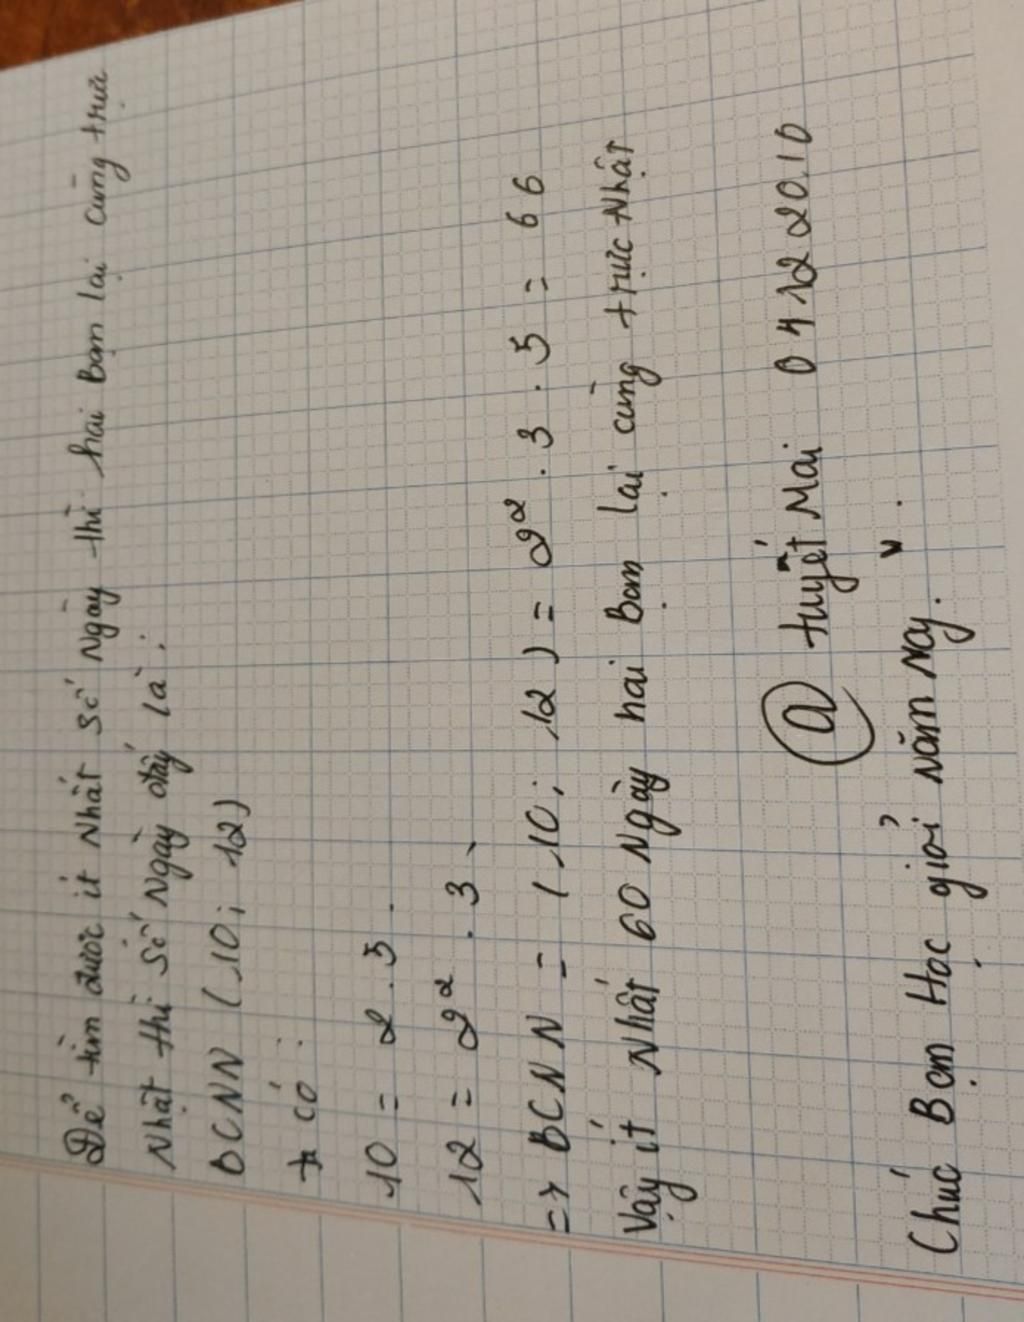 Để tìm được ít Nhất số Ngày thì hai Bạn lại cùng trực
Nhật thì số Ngày đấy là:
BCNN (10; 12)
* có:
10 = 2.5.
12 = 2² . 3.
=> BCNN = (10; 12) = 2² . 3 . 5 = 66
Vậy ít Nhất 60 Ngày hai Bạn lại cùng trực Nhật
@ tuyết Mai 04122010
Chúc Bạn Học giỏi năm nay. v .